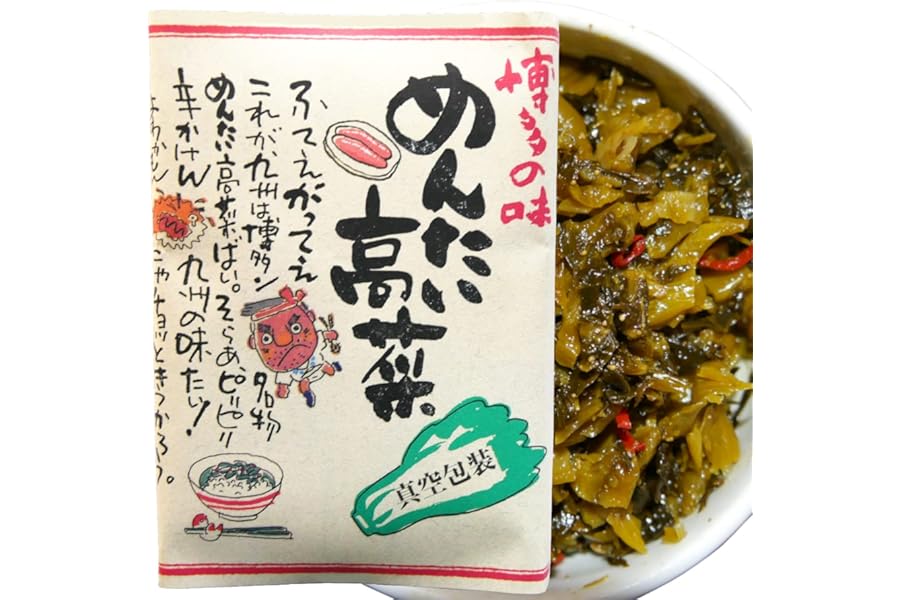 博多の味
めんたい
高菜
ふてえがってえ
これが九州は博多ン名物
めんたい高菜ばい。そらあ、ピーピリ
辛かけん 九州の味たい!
真空包装